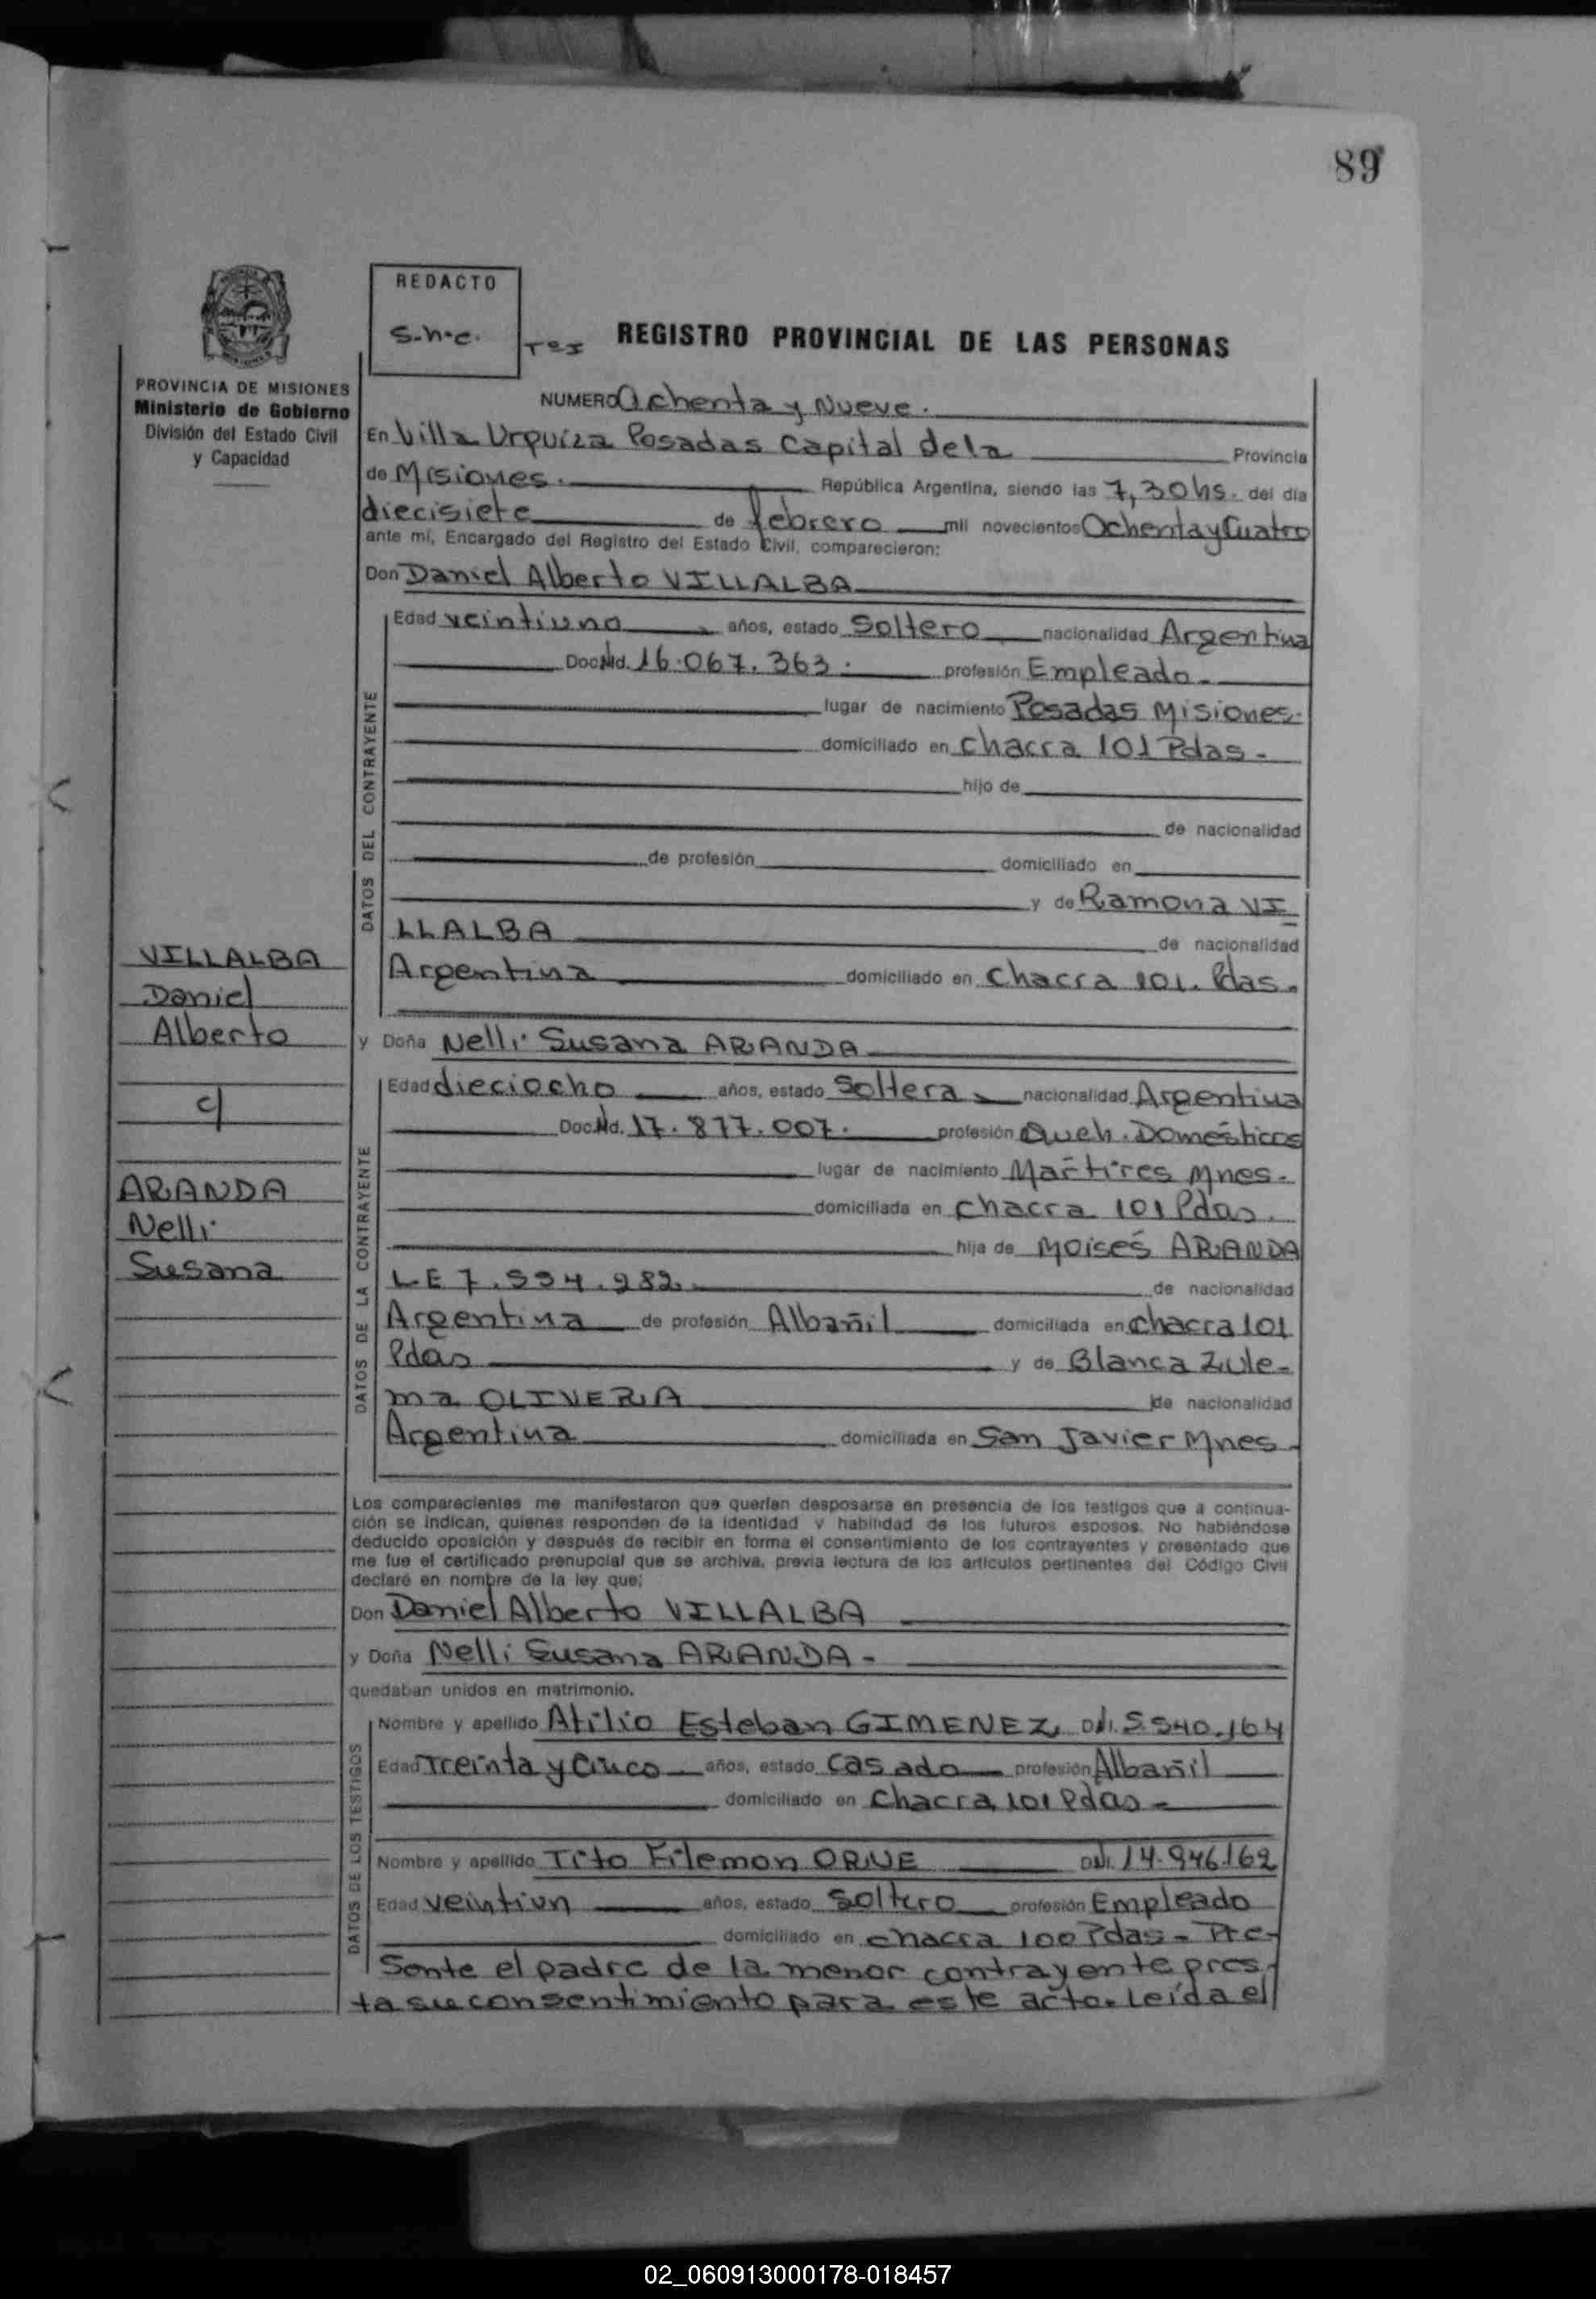 89
REDACTO
S.n.c.
REGISTRO PROVINCIAL DE LAS PERSONAS
PROVINCIA DE MISIONES
Ministerio de Gobierno
División del Estado Civil
y Capacidad
NUMERO Ochenta y Nueve.
En Villa Urquiza Posadas Capital dela Provincia
de Misiones. República Argentina, siendo las 7,30 hs. del día
diecisiete de febrero mil novecientos Ochenta y Cuatro
ante mí, Encargado del Registro del Estado Civil, comparecieron:
Don Daniel Alberto VILLALBA
DATOS DEL CONTRAYENTE
Edad veintiuno años, estado Soltero nacionalidad Argentina
Doc. Nd. 16.067.363. profesión Empleado
lugar de nacimiento Posadas Misiones.
domiciliado en chacra 101 Pdas-
hijo de
de nacionalidad
de profesión domiciliado en
y de Ramona VI
LLALBA de nacionalidad
Argentina domiciliado en Chacra 101. Pdas.
VILLALBA
Daniel
Alberto
c/
ARANDA
Nelli
Susana
y Doña Nelli Susana ARANDA
DATOS DE LA CONTRAYENTE
Edad dieciocho años, estado Soltera nacionalidad Argentina
Doc. Nd. 17.877.007. profesión Queh. Domésticos
lugar de nacimiento Mártires Mnes.
domiciliada en chacra 101 Pdas.
hija de Moisés ARANDA
LE 7. de nacionalidad
Argentina de profesión Albañil domiciliada en chacra 101
Pdas y de Blanca Zule-
ma OLIVERIA de nacionalidad
Argentina domiciliada en San Javier Mnes
Los comparecientes me manifestaron que querían desposarse en presencia de los testigos que a continua-
ción se indican, quienes responden de la identidad y habilidad de los futuros esposos. No habiéndose
deducido oposición y después de recibir en forma el consentimiento de los contrayentes y presentado que
me fue el certificado prenupcial que se archiva, previa lectura de los artículos pertinentes del Código Civil
declaré en nombre de la ley que;
Don Daniel Alberto VILLALBA
y Doña Nelli Susana ARANDA-
quedaban unidos en matrimonio.
DATOS DE LOS TESTIGOS
Nombre y apellido Atilio Esteban GIMENEZ
Edad Treinta y Cinco años, estado Casado profesión Albañil
domiciliado en Chacra 101 Pdas-
Nombre y apellido Tito Filemon ORUE 14.946.162
Edad veintiun años, estado Soltero profesión Empleado
domiciliado en chacra 100 Pdas- Pre-
Sente el padre de la menor contrayente pres-
ta su consentimiento para este acto. Leída el
02_060913000178-018457